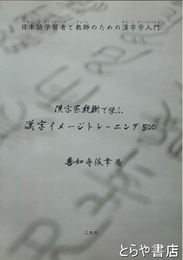 日本語学習者と教師のための漢字学入門
漢字系統樹で学ぶ
漢字イメージトレーニング500
善如寺俊幸 著
とらや書店